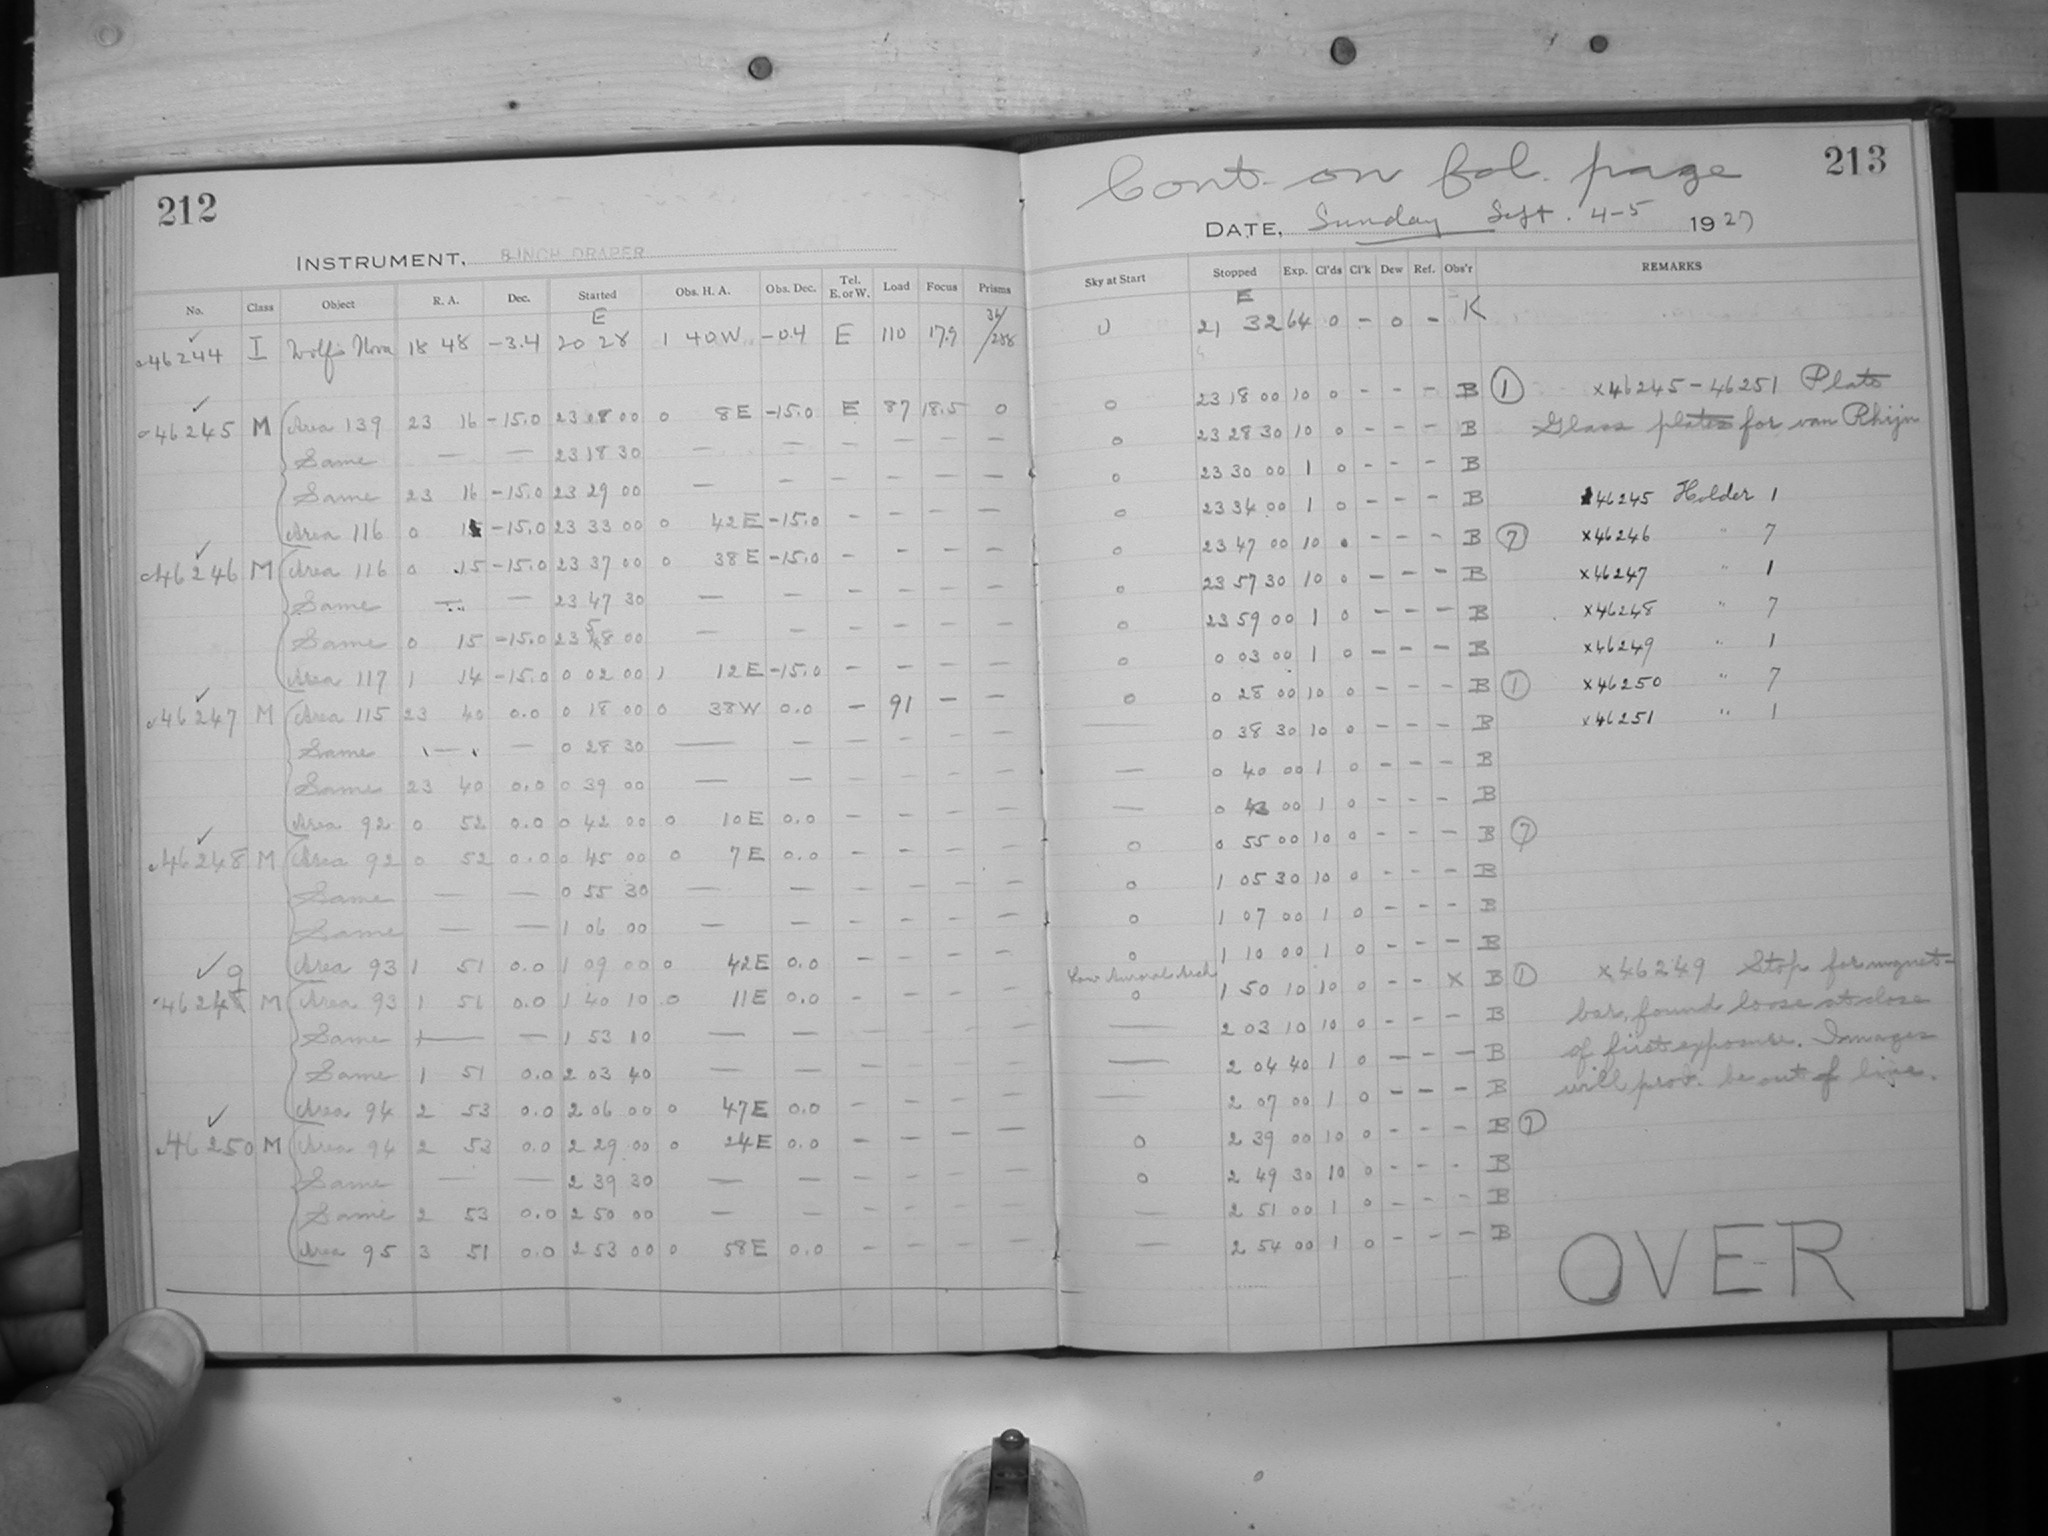 212
INSTRUMENT, 8-INCH DRAPER
No. Class Object R. A. Dec. Started Obs. H. A. Obs. Dec. Tel. E. or W. Load Focus Prisms
46244 I Wolf's Nova 18 48 -3.4 E 20 28 1 40 W -0.4 E 110 17.9
46245 M Area 139 23 16 -15.0 23 08 00 0 8 E -15.0 E 87 18.5 0
Same — — 23 18 30 — — — — — —
Same 23 16 -15.0 23 29 00 — — — — — —
Area 116 0 15 -15.0 23 33 00 0 42 E -15.0 — — — —
46246 M Area 116 0 15 -15.0 23 37 00 0 38 E -15.0 — — — —
Same — — 23 47 30 — — — — — —
Same 0 15 -15.0 23 58 00 — — — — — —
Area 117 1 14 -15.0 0 02 00 1 12 E -15.0 — — — —
46247 M Area 115 23 40 0.0 0 18 00 0 38 W 0.0 — 91 — —
Same — — 0 28 30 — — — — — —
Same 23 40 0.0 0 39 00 — — — — — —
Area 92 0 52 0.0 0 42 00 0 10 E 0.0 — — — —
46248 M Area 92 0 52 0.0 0 45 00 0 7 E 0.0 — — — —
Same — — 0 55 30 — — — — — —
Same — — 1 06 00 — — — — — —
Area 93 1 51 0.0 1 09 00 0 42 E 0.0 — — — —
46249 M Area 93 1 51 0.0 1 40 10 0 11 E 0.0 — — — —
Same — — 1 53 10 — — — — — —
Same 1 51 0.0 2 03 40 — — — — — —
Area 94 2 53 0.0 2 06 00 0 47 E 0.0 — — — —
46250 M Area 94 2 53 0.0 2 29 00 0 24 E 0.0 — — — —
Same — — 2 39 30 — — — — — —
Same 2 53 0.0 2 50 00 — — — — — —
Area 95 3 51 0.0 2 53 00 0 58 E 0.0 — — — —
Cont. on fol. page
213
DATE, Sunday Sept. 4-5 1927
Sky at Start Stopped Exp. Cl'ds Cl'k Dew Ref. Obs'r REMARKS
E 21 32 64 0 - 0 - K
0 23 18 00 10 0 - - - B 1 x46245-46251 Plate
0 23 28 30 10 0 - - - B Glass plates for van Rhijn
0 23 30 00 1 0 - - - B
0 23 34 00 1 0 - - - B 46245 Holder 1
0 23 47 00 10 0 - - - B 7 x46246 " 7
0 23 57 30 10 0 - - - B x46247 " 1
0 23 59 00 1 0 - - - B x46248 " 7
0 0 03 00 1 0 - - - B x46249 " 1
0 0 28 00 10 0 - - - B 1 x46250 " 7
— 0 38 30 10 0 - - - B x46251 " 1
— 0 40 00 1 0 - - - B
— 0 43 00 1 0 - - - B
0 0 55 00 10 0 - - - B 7
0 1 05 30 10 0 - - - B
0 1 07 00 1 0 - - - B
0 1 10 00 1 0 - - - B
Low Auroral Arch 0 1 50 10 10 0 - - X B 1 x46249 Stop for magnet-
— 2 03 10 10 0 - - - B bar, found loose at close
— 2 04 40 1 0 - - - B of first exposure. Images
— 2 07 00 1 0 - - - B will prob. be out of line.
0 2 39 00 10 0 - - - B 7
0 2 49 30 10 0 - - - B
— 2 51 00 1 0 - - - B
— 2 54 00 1 0 - - - B
OVER